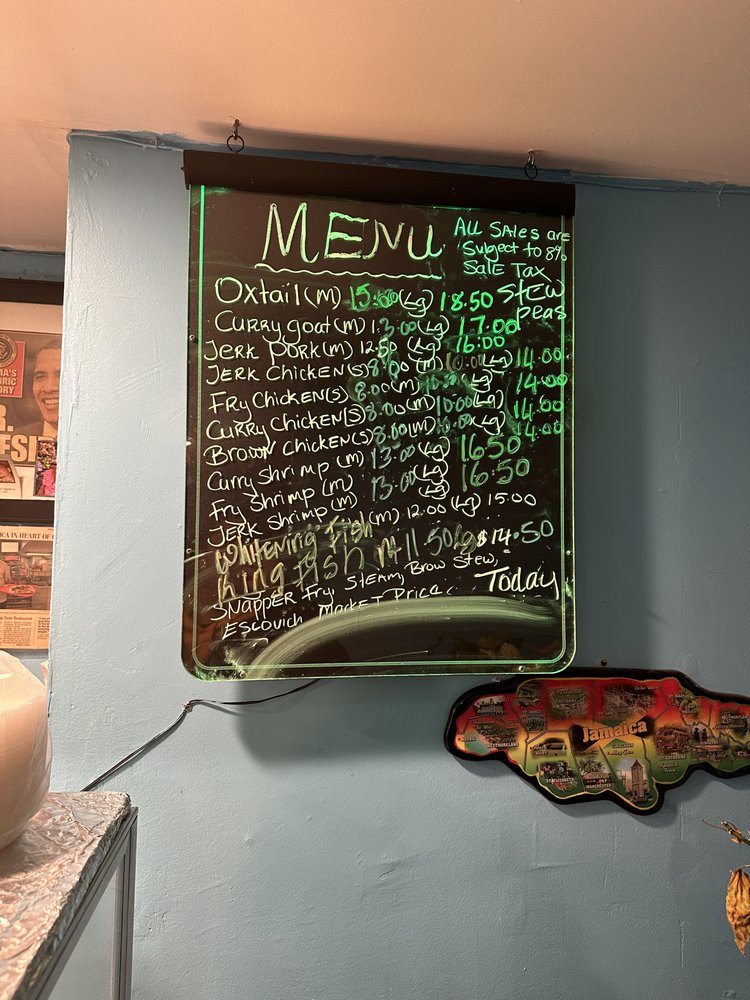 MENU
ALL SAles are
Subject to 8%
Sale Tax
Oxtail (m) 15.00 (Lg) 18.50 Stew
peas
Curry goat (m) 13.00 (Lg) 17.00
Jerk Pork (m) 12.50 (Lg) 16:00
Jerk Chicken (S) 8.00 (m) 10.00 (Lg) 14.00
Fry Chicken (S) 8.00 (m) 10.00 (Lg) 14.00
Curry Chicken (S) 8.00 (m) 10.00 (Lg) 14.00
Brown Chicken (S) 8.00 (m) 10.00 (Lg) 14.00
Curry Shrimp (m) 13.00 (Lg) 16.50
Fry Shrimp (m) 13.00 (Lg) 16.50
Jerk Shrimp (m) (Lg)
Whitening Fish (m) 12.00 (Lg) 15.00
King Fish m 11.50 Lg $14.50
Snapper Fry, Steam, Brow Stew,
Escovich Market Price. Today
Jamaica